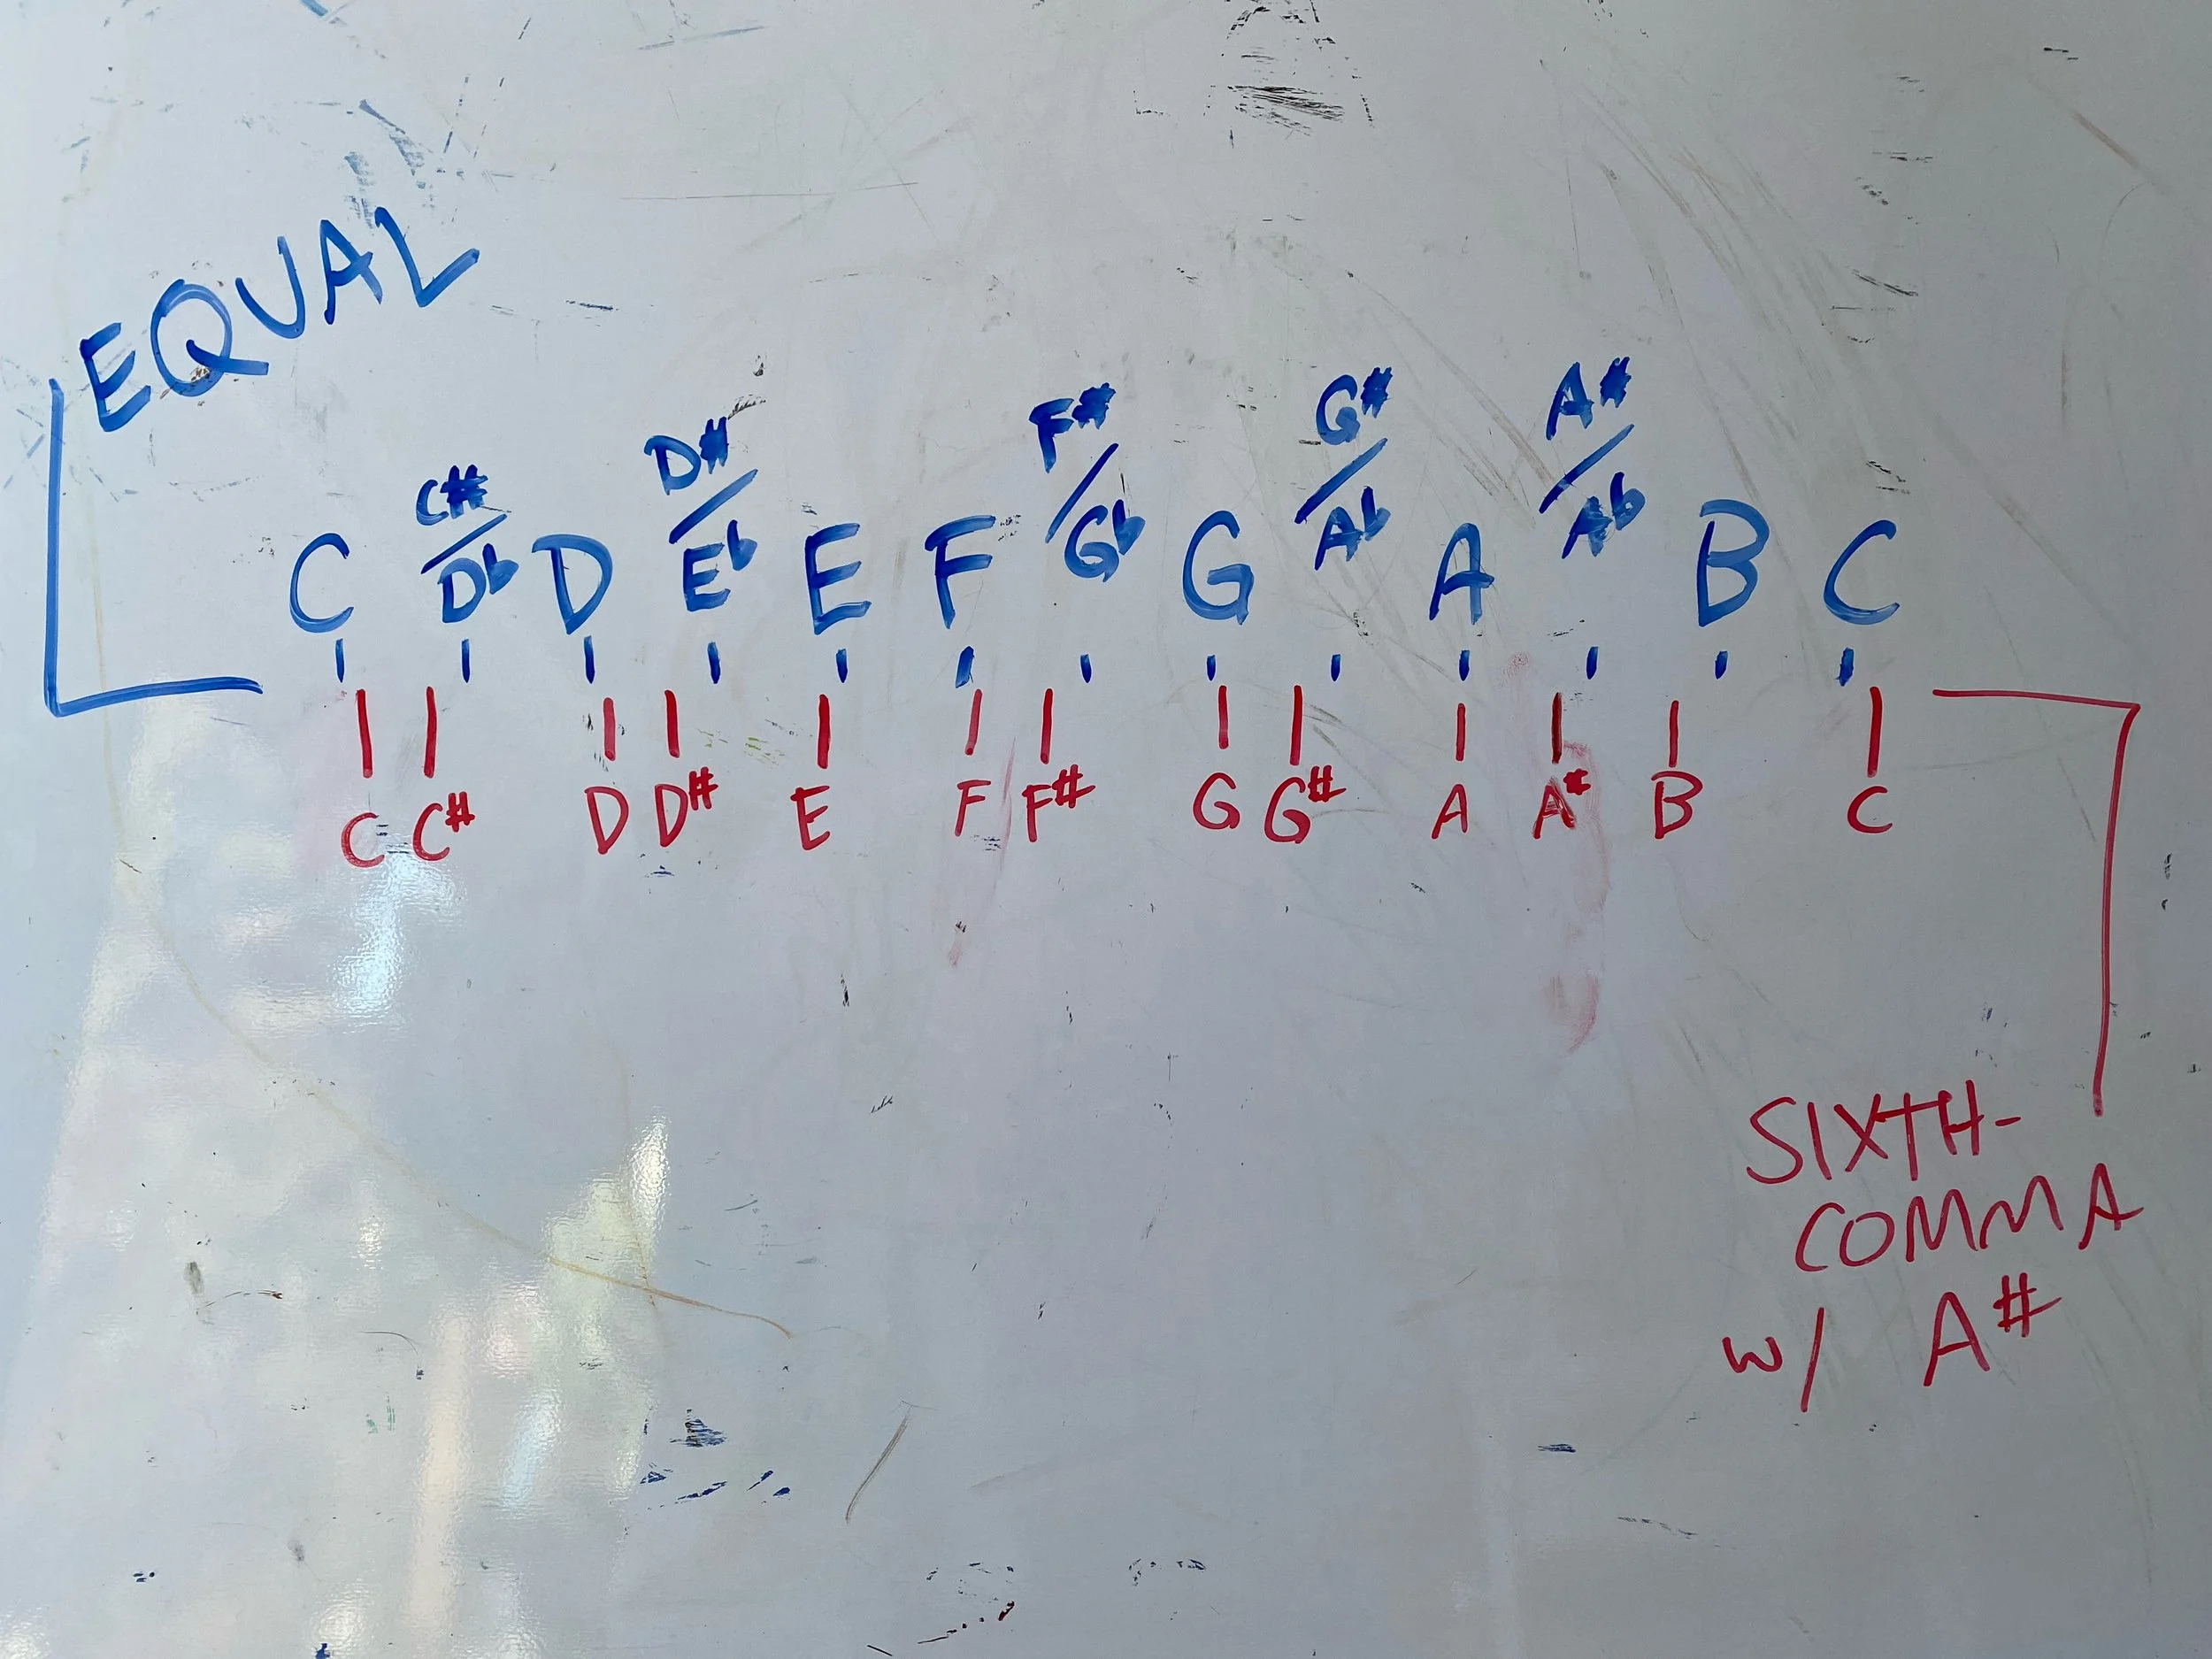 EQUAL
C C#/Db D D#/Eb E F F#/Gb G G#/Ab A A#/Ab B C
C C# D D# E F F# G G# A A# B C
SIXTH-
COMMA
w/ A#